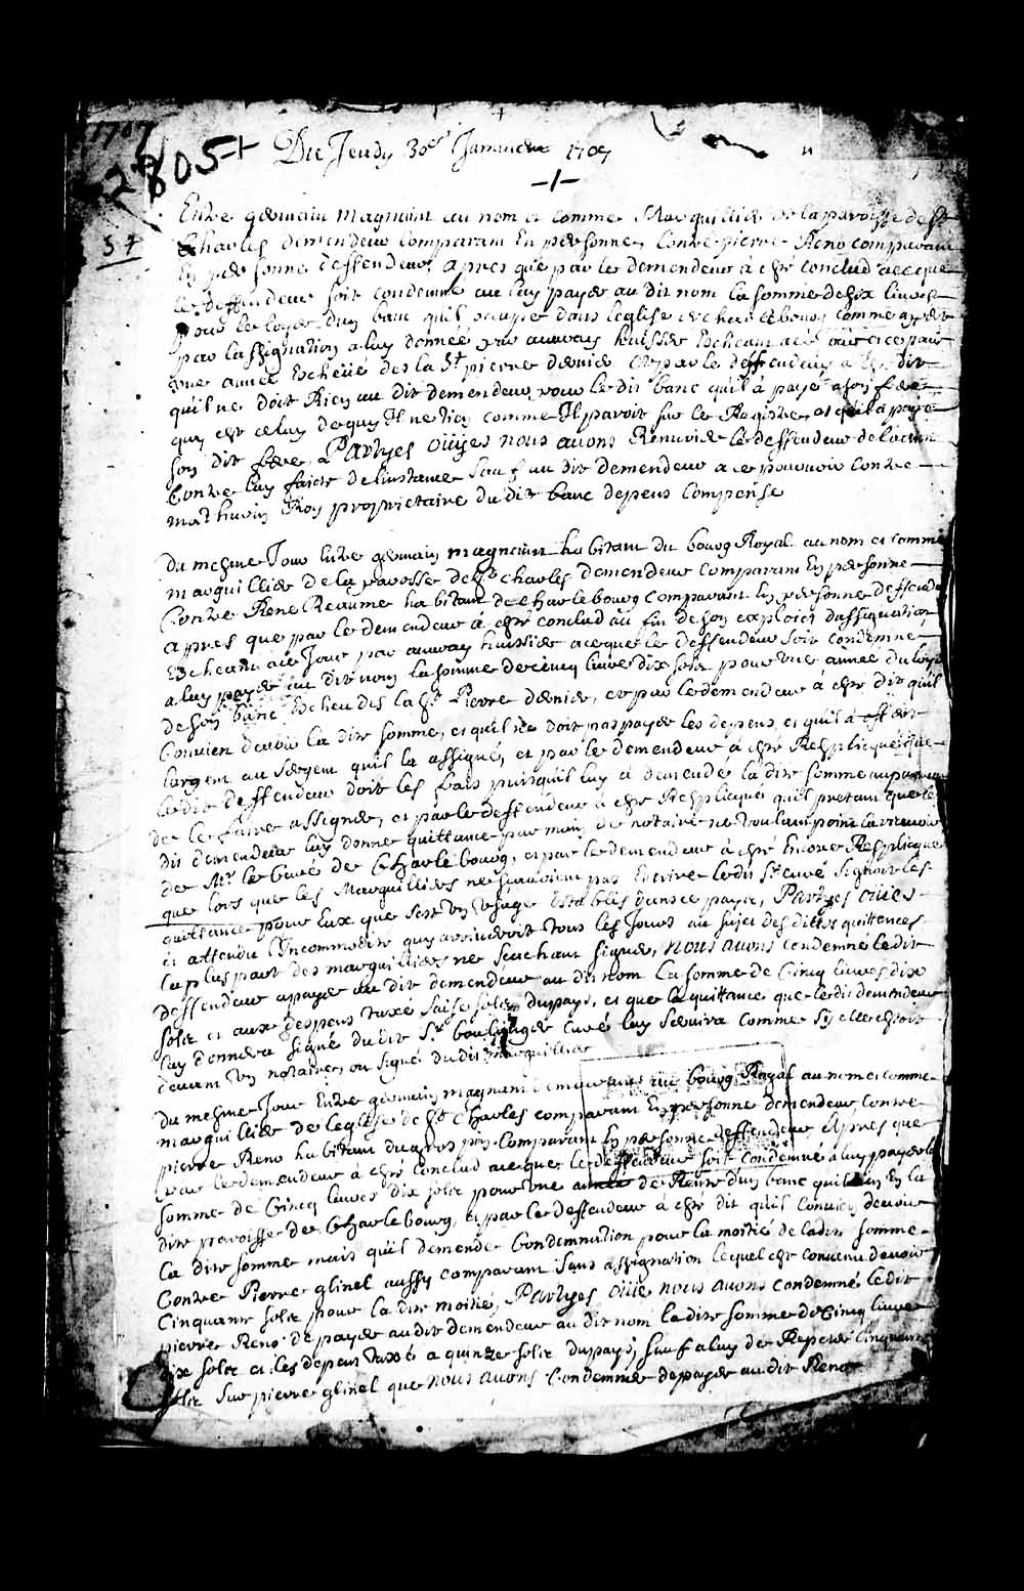 1707
2805+
Du Jeudy 30er Januier 1707
57
-/-
Entre germain magnant au nom et comme Marguillier de la paroisse de St
Charles demendeur comparant En personne, Contre pierre Reno comparant
En personne deffendeur, apres que par le demendeur à esté conclud acceque
le deffendeur soit condemné au luy payer au dit nom la somme de six liures
pour le loyer dun banc qu'il occupe dans leglise de charlebourg comme apert
par lassignation a luy donnée par auuray huissier Echeant
une année Escheüe des la St pierre dernier Et par le deffendeur a Esté dit
qu'il ne doit Rien au dit demendeur pour le dit banc qu'il à payé a son frere
quy est celuy de quy Il ne tien comme Il paroit sur le Registre, et qu'il à payé
son dit frere, Partyes ouÿes nous auons Renuoiée le deffendeur de laction
Contre luy faicte de linstance sauf au dit demendeur a se pouruoir Contre
mathurin Roy proprietaire du dit banc depens Compensé
Du mesme Jour Entre germain magnant habitant du bourg Royal au nom et comme
marguillier de la paroisse de St charles demendeur comparant En personne
Contre René Reaume habitant de charlebourg comparant En personne deffendeur
apres que par le demendeur à esté conclud au fin de son exploict dassignation
Escheant a ce Jour par auuray huissier aceque le deffendeur soit condemné
a luy payer au dit nom la somme de cinq liures dix sols pour une année du loyer
de son banc Escheu des la St Pierre dernier, et par le demendeur à esté dit qu'il
Conuien deuoir la dite somme, et qu'il ne doit pas payer les depens, et qu'il à offert
largent au sergent qu'il la assigné, et par le demendeur à esté Respliqué que
le dit deffendeur doit les frais puisqu'il luy à demendé la dite somme auparauant
de le faire assigner, et par le deffendeur à esté Respliqué qu'il pretent que le
dit demendeur luy donne quittance par main de notaire ne voulant point la receuoir
de Mr le Curé de Charlebourg, et par le demendeur à esté Encore Respliqué
que lors que les Marguilliers ne scauoient pas Escrire le dit Sr curé signoit les
quittance pour Eux que sest un Usage Establis dans ce payis, Partyes ouies
et attendu lIncommodité quy ariueroit tous les Jours au sujet des dittes quittences
la plus part des marguilliers ne sachant signer, nous auons Condemné le dit
Deffendeur a payer au dit demendeur au dit nom La somme de Cinq liures dix
sols et aux despens taxé saise sols du pays, et que la quittance que le dit demendeur
luy donnera signé du dit Sr boullenger Curé luy seruira comme sy elle estoit
deuant un notaire, ou signé du dit marguillier
Du mesme Jour Entre germain magnant demeurant au bourg Royal au nom et comme
marguillier de leglise de St Charles comparant En personne demendeur, Contre
pierre Reno habitant du gros pin Comparant En personne deffendeur Apres que
par le demendeur à esté conclud aceque le deffendeur soit condemné à luy payer la
somme de Cinq liures dix sols pour une année de Rente dun banc quil tien En la
dite paroisse de Charlebourg, et par le deffendeur à esté dit qu'il Conuien deuoir
la dite somme mais qu'il demende Condemnation pour la moitié de ladite somme
Contre Pierre glinel aussy comparant sans assignation lequel est conuenu deuoir
Cinquante sols pour la dite moitié, Partyes ouie nous auons Condemné le dit
pierre Reno de payer au dit demendeur au dit nom la dite somme de Cinq liures
dix sols et les depens taxés a quinze sols du pays, sauf a luy de Repeter Cinquante
sols sur pierre glinel que nous auons Condemné de payer au dit Reno